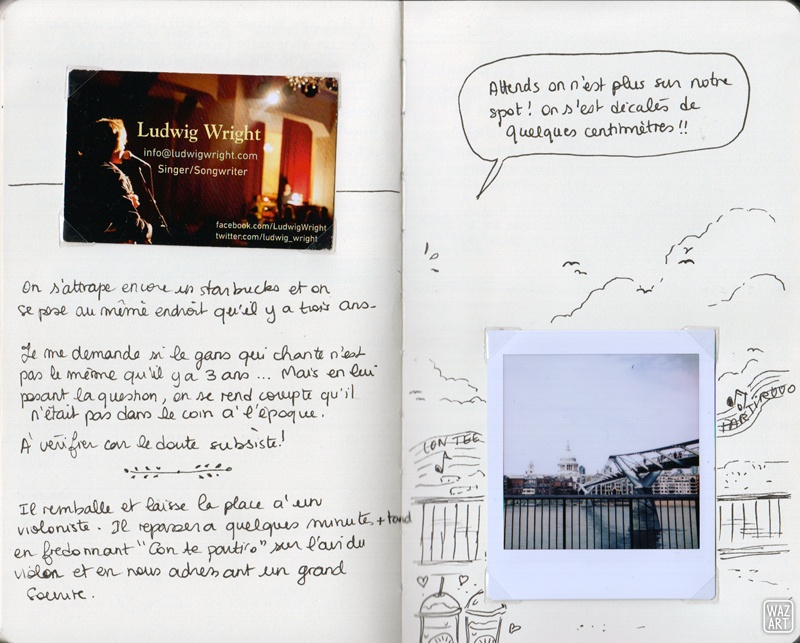 Ludwig Wright
info@ludwigwright.com
Singer/Songwriter
facebook.com/LudwigWright
twitter.com/ludwig_wright
On s'attrape encore un starbucks et on
se pose au même endroit qu'il y a trois ans.
Je me demande si le gars qui chante n'est
pas le même qu'il y a 3 ans ... Mais en lui
posant la question, on se rend compte qu'il
n'était pas dans le coin à l'époque.
À vérifier car le doute subsiste!
Il remballe et laisse la place à un
violoniste. Il repassera quelques minutes + tard
en fredonnant "Con te partiro" sur l'air du
violon et en nous adressant un grand
sourire.
Attends on n'est plus sur notre
spot! On s'est décalés de
quelques centimètres!!
CON TE E
PARTIROOO
WAZ
ART